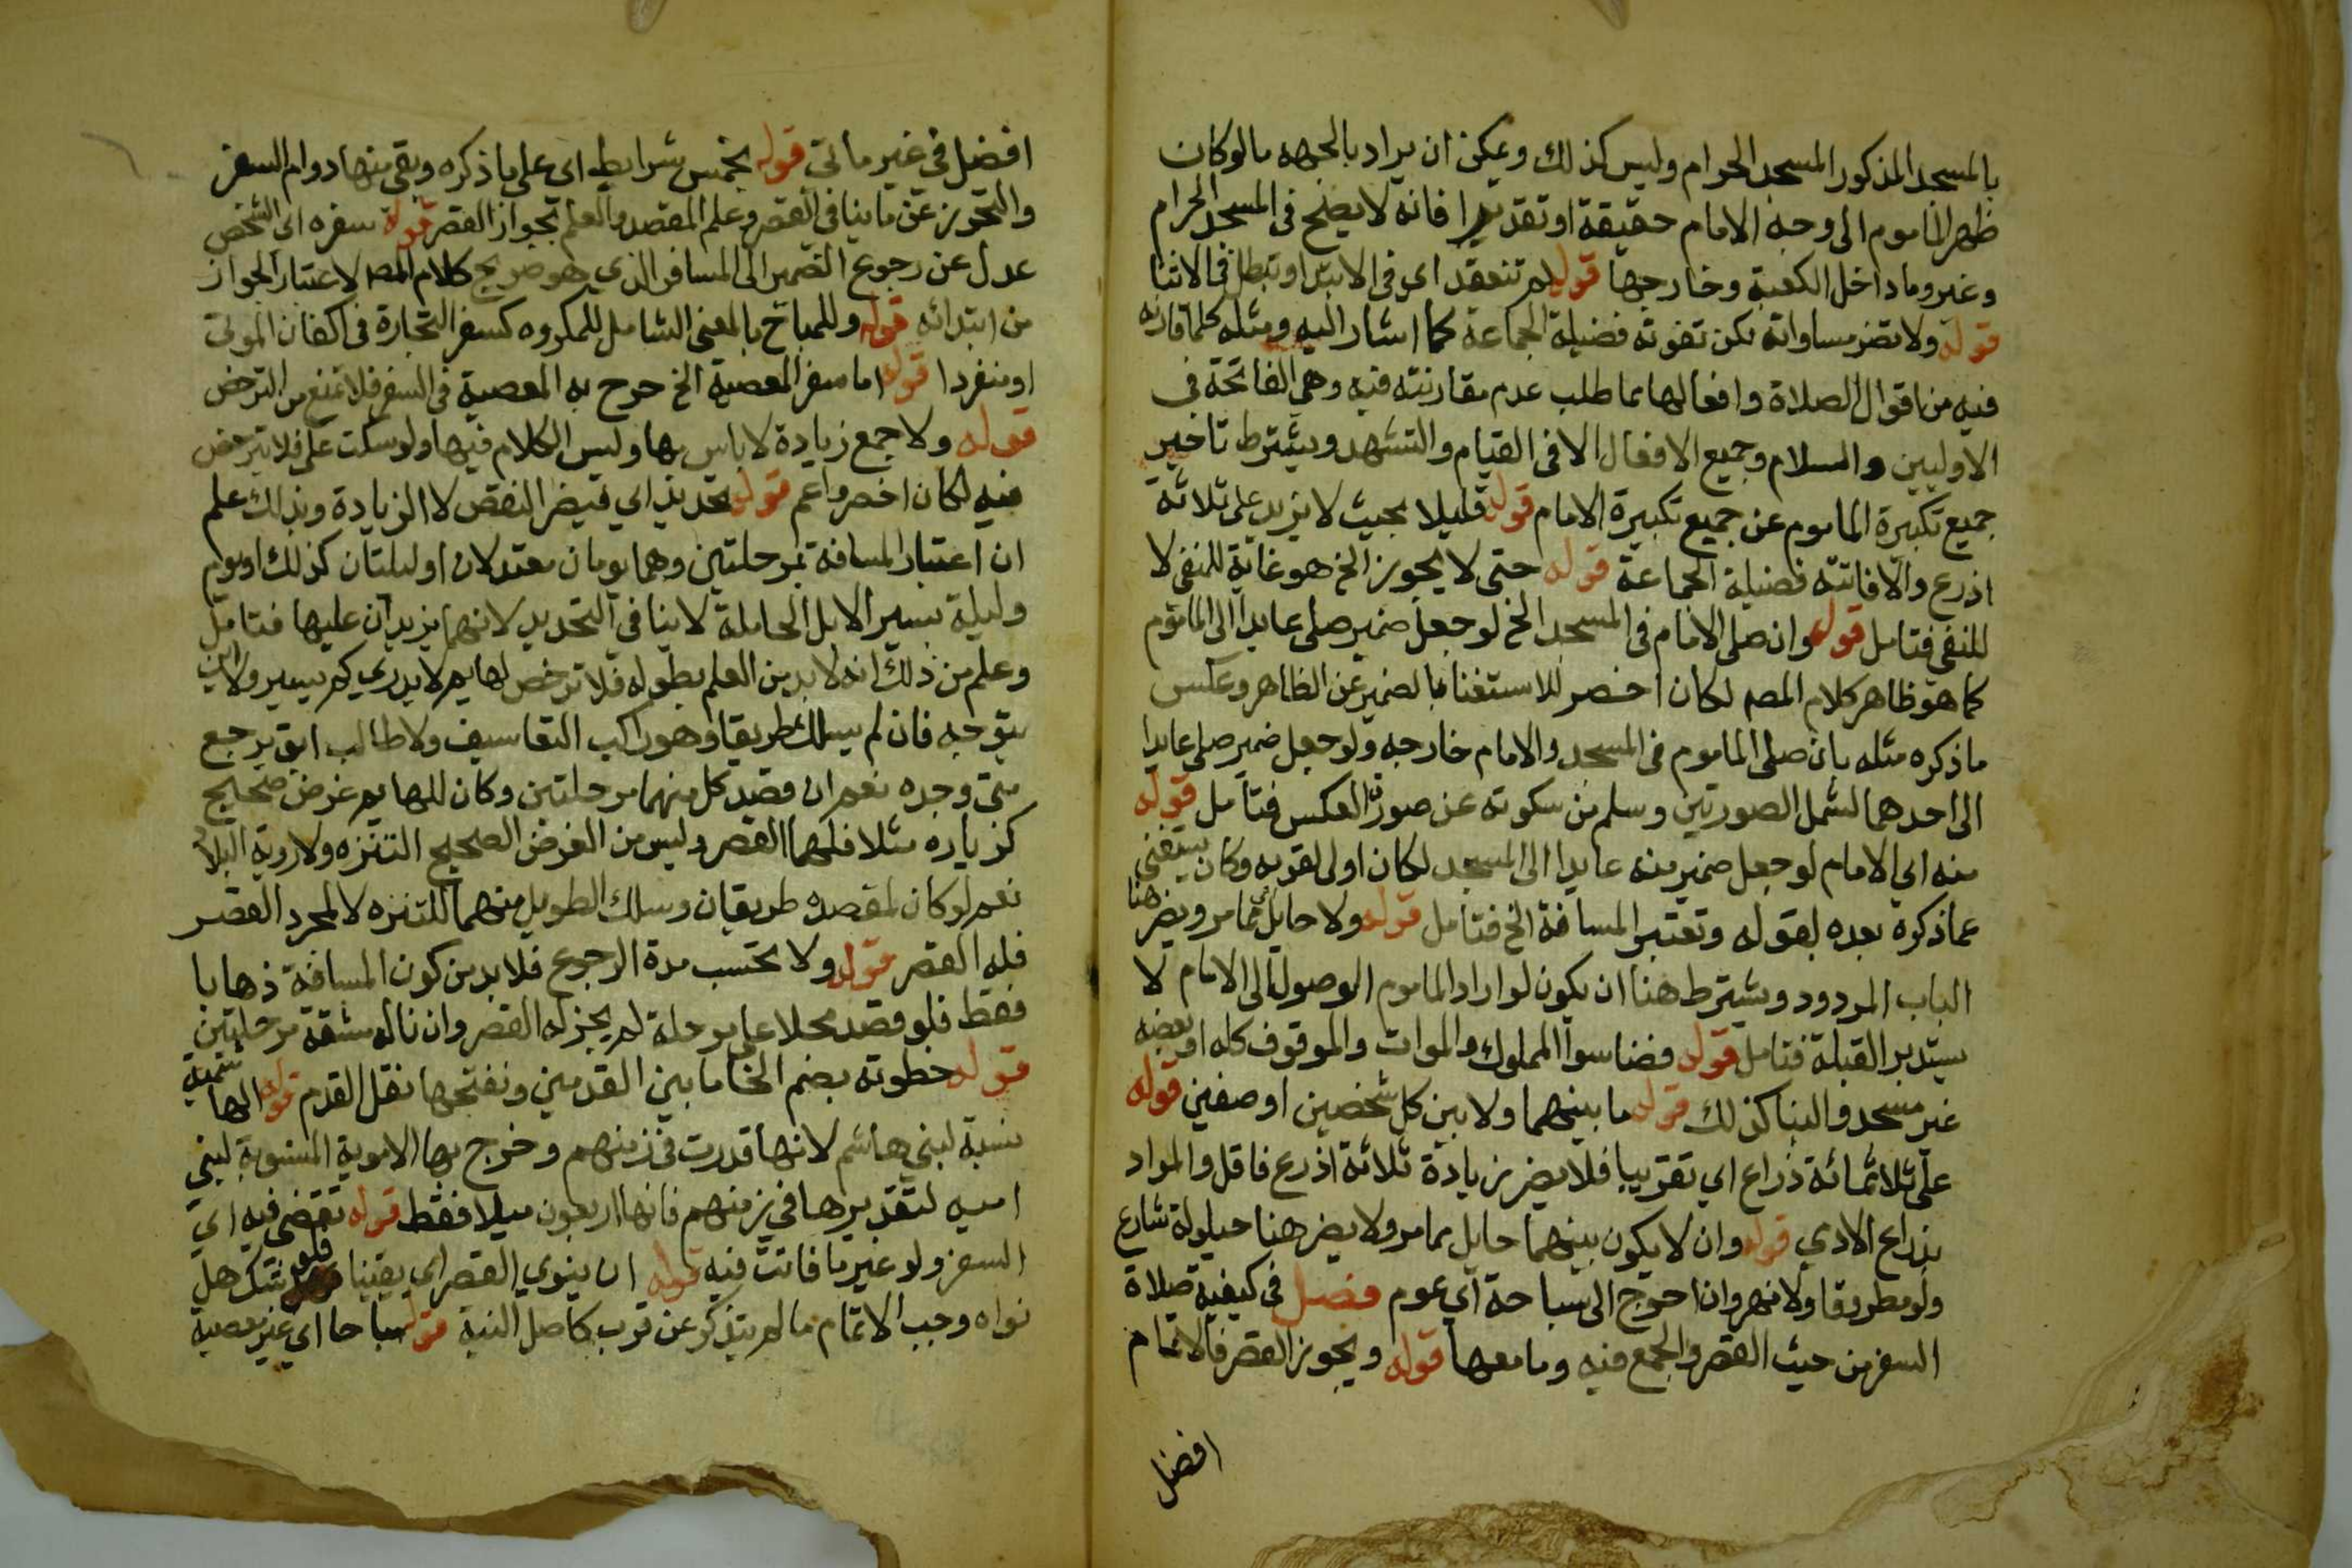 بالمسجد المذكور المسجد الحرام وليس كذلك ويمكن ان يراد بالجهه ما لو كان
ظهر الماموم الى وجه الامام حقيقة او تقديرا فانه لا يصح فى المسجد الحرام
وغيره وما داخل الكعبة وخارجها قوله لم تنعقد اي فى الابتدا او تبطل فى الاثنا
قوله ولا تضر مساواته لكن تفوته فضيلة الجماعة كما اشار اليه ومثله كلما قارنه
فيه من اقوال الصلاة وافعالها مما طلب عدم مقارنته فيه وهى الفاتحة فى
الاوليين والسلام وجميع الافعال الا فى القيام والتشهد ويشترط تاخير
جميع تكبيرة الماموم عن جميع تكبيرة الامام قوله قليلا بحيث لا يزيد على ثلاثة
اذرع والا فاتته فضيلة الجماعة قوله حتى لا يجوز الخ هو غاية للمنفى لا
للنفى فتامل قوله وان صلى الامام فى المسجد الخ لو جعل ضمير صلى عايدا الى الماموم
كما هو ظاهر كلام المصـ لكان اخصر للاستغنا بالضمير عن الظاهر وعكس
ما ذكره مثله بان صلى الماموم فى المسجد والامام خارجه ولو جعل ضمير صلى عايدا
الى احدهما لشمل الصورتين وسلم من سكوته عن صورة العكس فتامل قوله
منه اي الامام لو جعل ضمير منه عايدا الى المسجد لكان اولى لقربه وكان يستغنى
عما ذكره بعده بقوله وتعتبر المسافة الخ فتامل قوله ولا حايل مما مر ويضر هنا
الباب المردود ويشترط هنا ان يكون لو اراد الماموم الوصول الى الامام لا
يستدبر القبلة فتامل قوله فضا سوا المملوك والموات والموقوف كله او بعضه
غير مسجد والبنا كذلك قوله ما بينهما ولا بين كل شخصين او صفين قوله
على ثلاثمائة ذراع اي تقريبا فلا يضر زيادة ثلاثة اذرع فاقل والمراد
بذراع الادمي قوله وان لا يكون بينهما حايل مما مر ولا يضر هنا حيلولة شارع
ولو مطروقا ولا نهر وان احوج الى سباحة اي عوم فصل فى كيفية صلاة
السفر من حيث القصر والجمع فيه وما معها قوله ويجوز القصر فالاتمام
افضل
افضل فى غير ما ياتى قوله بخمس شرايط اي على ما ذكره وبقى منها دوام السفر
والتحرز عن ما ينافى القصر وعلم المقصد والعلم بجواز القصر قوله سفره اى الشخص
عدل عن رجوع الضمير الى المسافر الذي هو صريح كلام المصـ لاعتبار الجواز
من ابتدائه قوله وللمباح بالمعنى الشامل للمكروه كسفر التجارة فى اكفان الموتى
او منفردا قوله اما سفر المعصية الخ خرج به المعصية فى السفر فلا تمنع من الترخص
قوله ولا جمع زيادة لا باس بها وليس الكلام فيها ولو سكت على فلا يترخص
فيه لكان اخصر واعم قوله تحديد اي فيضر النقص لا الزيادة وبذلك علم
ان اعتبار المسافة بمرحلتين وهما يومان معتدلان او ليلتان كذلك او يوم
وليلة بسير الابل الحاملة لا ينافى التحديد لانهما يزيدان عليها فتامل
وعلم من ذلك انه لا بد من العلم بطوله فلا ترخص لهايم لا يدري كم يسير ولا اين
يتوجه فان لم يسلك طريقا وهو راكب التعاسيف ولا طالب ابق يرجع
متى وجده نعم ان قصد كل منهما مرحلتين وكان للهايم غرض صحيح
كزياره مثلا فلهما القصر وليس من الغرض الصحيح التنزه ولا روية البلاد
نعم لو كان لمقصده طريقان وسلك الطويل منهما للتنزه لا لمجرد القصر
فله القصر قوله ولا تحسب مدة الرجوع فلا بد من كون المسافة ذهابا
فقط فلو قصد محلا على مرحلة لم يجز له القصر وان ناله مشقة مرحلتين
قوله خطوته بضم الخا ما بين القدمين وبفتحها نقل القدم قوله الهاشمية
نسبة لبنى هاشم لانها قدرت فى زمنهم وخرج بها الاموية المنسوبة لبنى
اميه لتقديرها فى زمنهم فانها اربعون ميلا فقط قوله تقضى فيه اي
السفر ولو غير ما فاتت فيه قوله ان ينوي القصر اي يقينا فلو شك هل
نواه وجب الاتمام ما لم يتذكر عن قرب كاصل النية قوله مباحا اي غير معصية